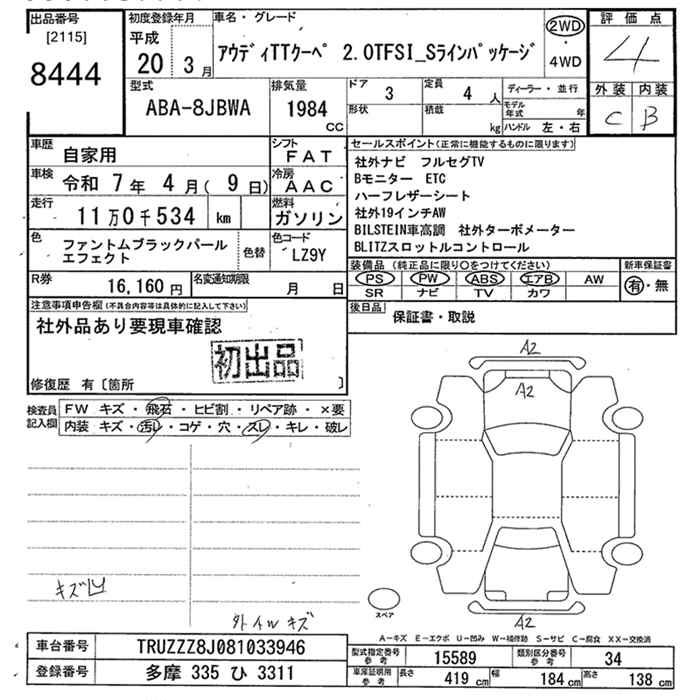 出品番号
[2115]
8444
初度登録年月
平成
20 3月
車名・グレード
アウディTTクーペ 2.0TFSI_Sラインパッケージ
2WD
・
4WD
評価点
4
外装 内装
C B
型式
ABA-8JBWA
排気量
1984
CC
ドア 3
定員 4 人
形状
積載
kg
ディーラー・並行
モデル年式 年
ハンドル 左・右
車歴
自家用
シフト
FAT
車検 令和 7年 4月( 9日)
冷房
AAC
走行
11万0千534 km
燃料
ガソリン
色
ファントムブラックパールエフェクト
色替
色コード
LZ9Y
R券
16,160円
名変通知期限
月 日
セールスポイント(正常に機能するものに限ります)
社外ナビ フルセグTV
Bモニター ETC
ハーフレザーシート
社外19インチAW
BILSTEIN車高調 社外ターボメーター
BLITZスロットルコントロール
装備品 (純正品に限り○をつけてください)
PS PW ABS エアB AW
SR ナビ TV カワ
新車保証書
有・無
後日品
保証書・取説
注意事項申告欄(不具合内容等は具体的に記入して下さい)
社外品あり要現車確認
初出品
修復歴 有〔箇所 〕
検査員
記入欄
FW キズ・飛石・ヒビ割・リペア跡・×要
内装 キズ・汚レ・コゲ・穴・スレ・キレ・破レ
A2
A2
A2
スペア
キズ凹
外イルキズ
A-キズ E-エクボ U-凹み W-補修跡 S-サビ C-腐食 XX-交換済
車台番号
TRUZZZ8J081033946
登録番号
多摩 335 ひ 3311
型式指定番号
参考
15589
類別区分番号
参考
34
車庫証明用
参考
長さ 419 cm
幅 184 cm
高さ 138 cm